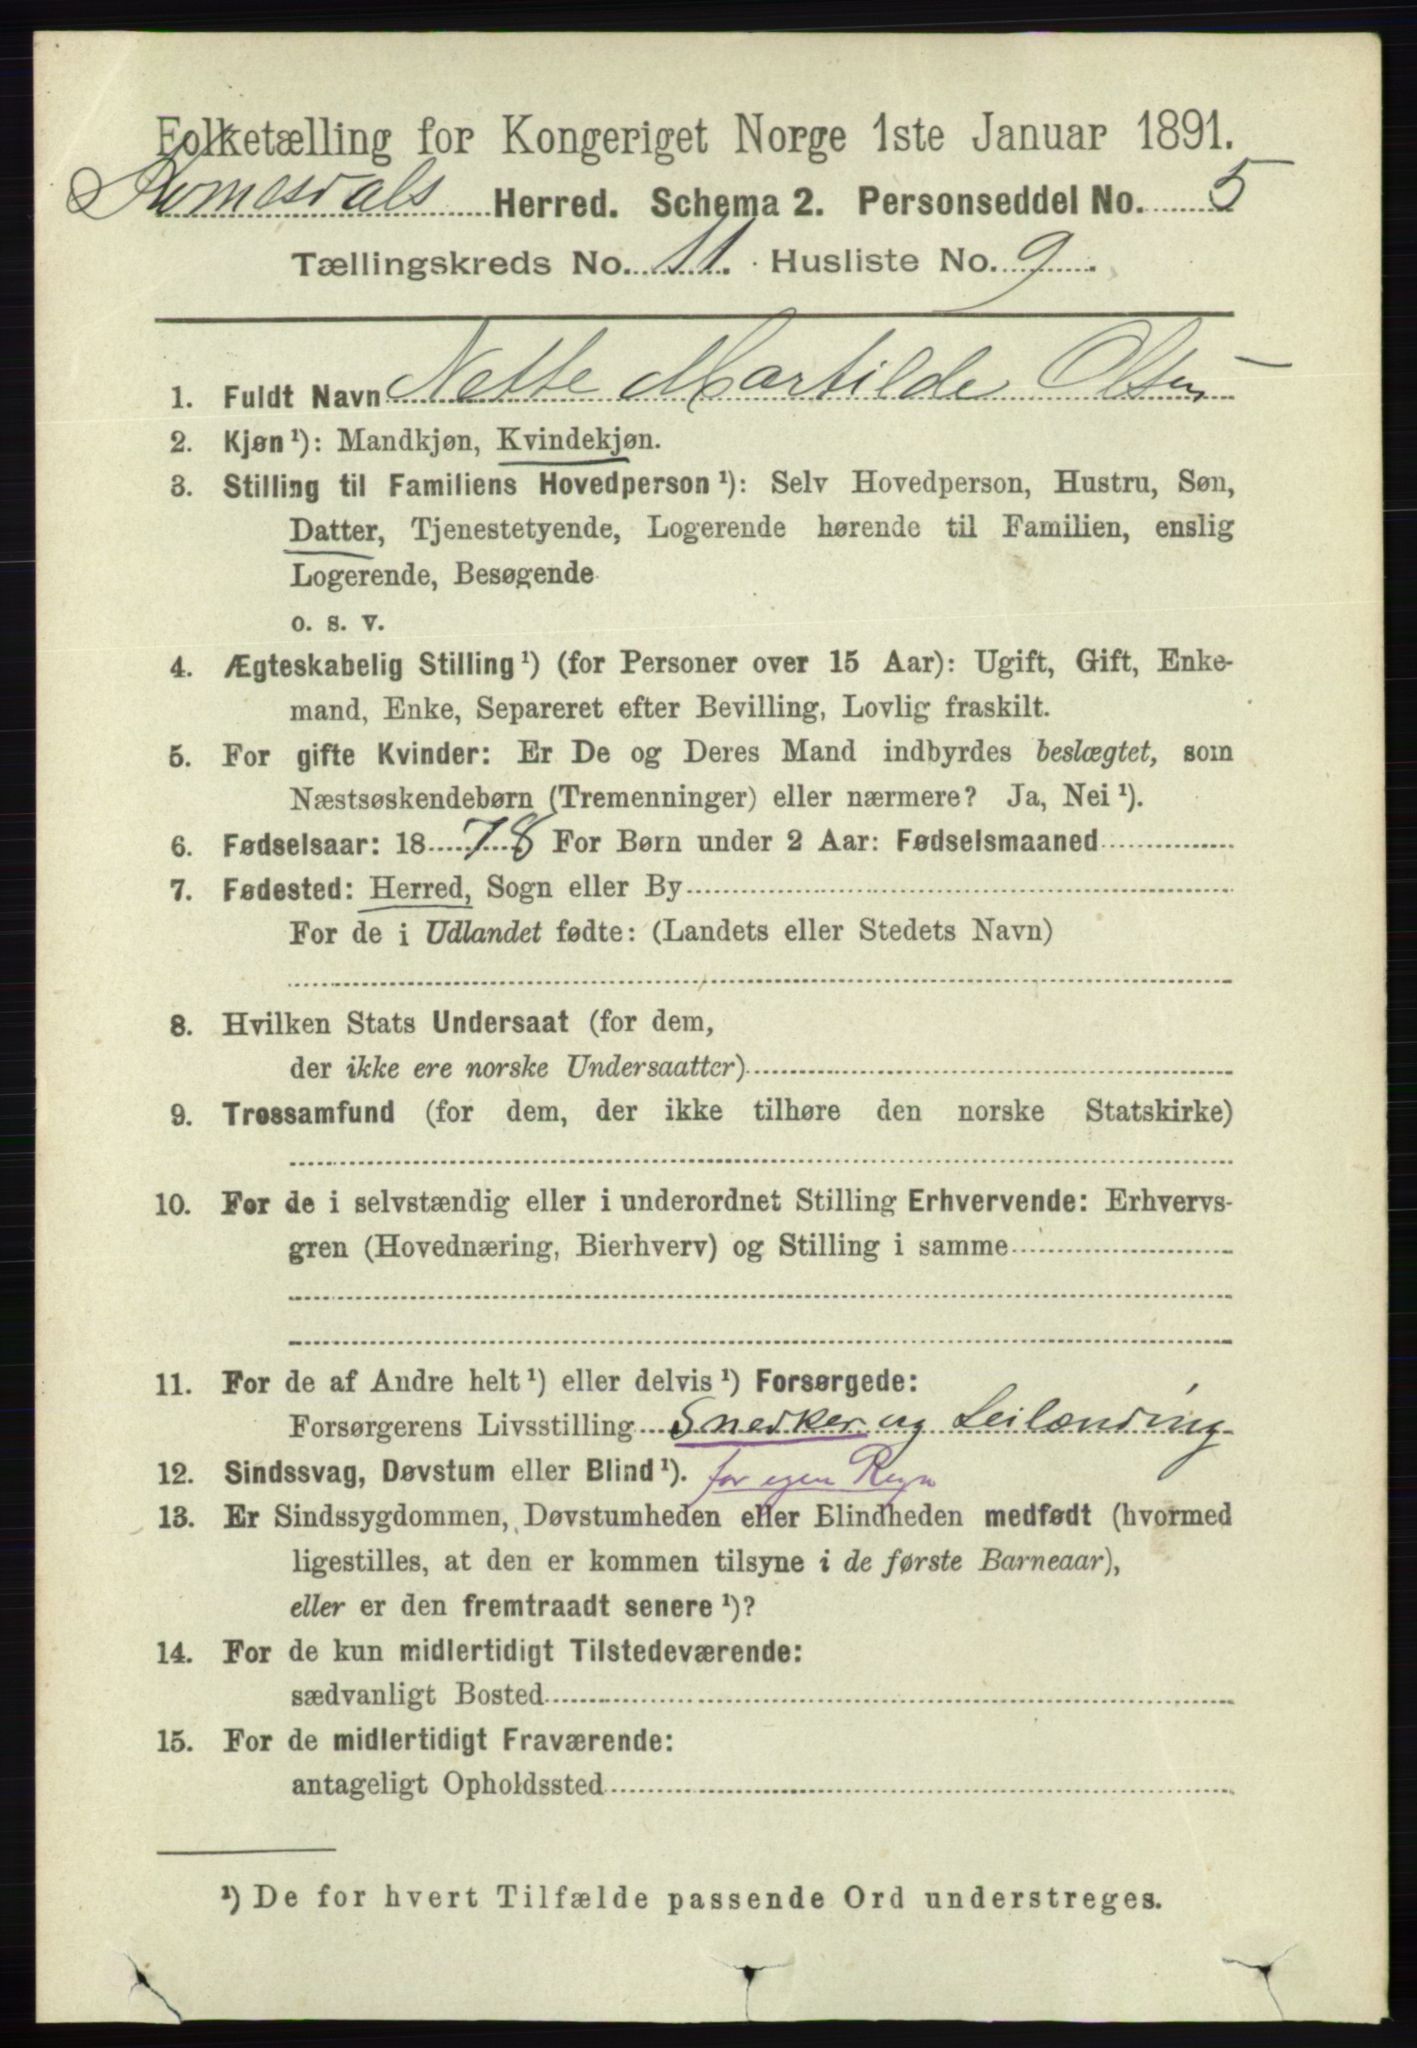 Folketælling for Kongeriget Norge 1ste Januar 1891.
Komesdals Herred. Schema 2. Personseddel No. 5
Tællingskreds No. 11. Husliste No. 9.
1. Fuldt Navn Nette Martilde Olsen
2. Kjøn ¹): Mandkjøn, Kvindekjøn.
3. Stilling til Familiens Hovedperson ¹): Selv Hovedperson, Hustru, Søn,
Datter, Tjenestetyende, Logerende hørende til Familien, enslig
Logerende, Besøgende
o. s. v.
4. Ægteskabelig Stilling ¹) (for Personer over 15 Aar): Ugift, Gift, Enke-
mand, Enke, Separeret efter Bevilling, Lovlig fraskilt.
5. For gifte Kvinder: Er De og Deres Mand indbyrdes beslægtet, som
Næstsøskendebørn (Tremenninger) eller nærmere? Ja, Nei ¹).
6. Fødselsaar: 1878 For Børn under 2 Aar: Fødselsmaaned
7. Fødested: Herred, Sogn eller By
For de i Udlandet fødte: (Landets eller Stedets Navn)
8. Hvilken Stats Undersaat (for dem,
der ikke ere norske Undersaatter)
9. Trossamfund (for dem, der ikke tilhøre den norske Statskirke)
10. For de i selvstændig eller i underordnet Stilling Erhvervende: Erhvervs-
gren (Hovednæring, Bierhverv) og Stilling i samme
11. For de af Andre helt ¹) eller delvis ¹) Forsørgede:
Forsørgerens Livsstilling Snedker og Leilænding
12. Sindssvag, Døvstum eller Blind ¹). for egen Regn
13. Er Sindssygdommen, Døvstumheden eller Blindheden medfødt (hvormed
ligestilles, at den er kommen tilsyne i de første Barneaar),
eller er den fremtraadt senere ¹)?
14. For de kun midlertidigt Tilstedeværende:
sædvanligt Bosted
15. For de midlertidigt Fraværende:
antageligt Opholdssted
¹) De for hvert Tilfælde passende Ord understreges.